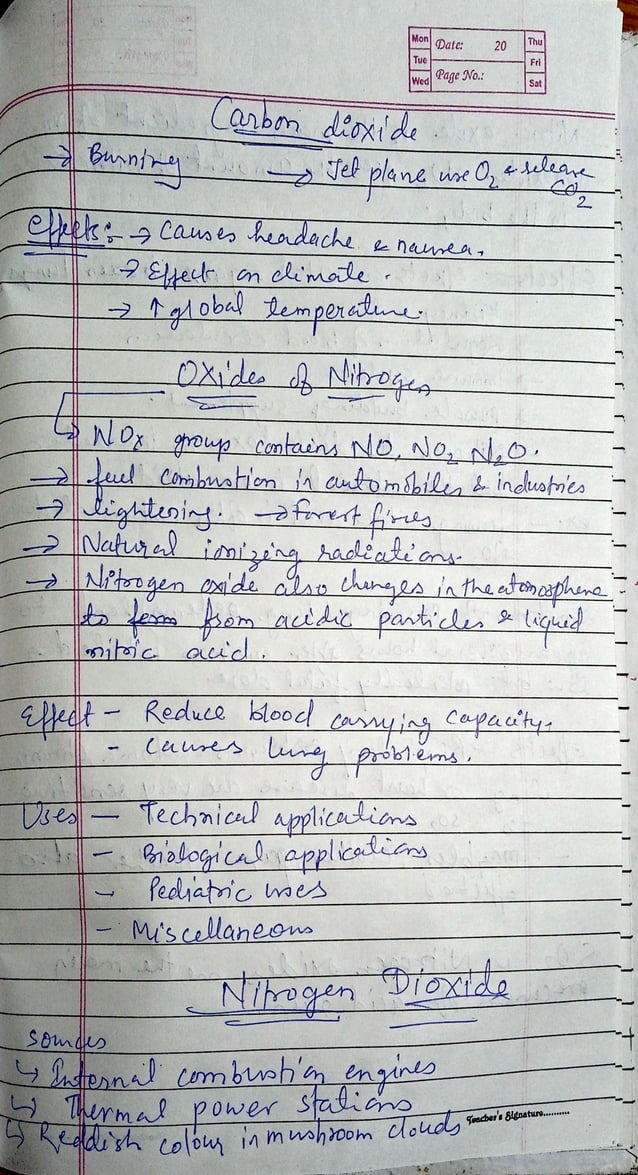 Mon Date: 20 Thu
Tue Fri
Wed Page No.: Sat
Carbon dioxide
→ Burning → Jet plane use O2 & release CO2
Effects:- → Causes headache & nausea.
→ Effect on climate.
→ ↑ global temperature.
Oxides of Nitrogen
↳ NOx group contains NO, NO2 N2O.
→ fuel combustion in automobiles & industries
→ lightening. → Forest fires
→ Natural ionizing radiations.
→ Nitrogen oxide also changes in the atomosphere
to form from acidic particles & liquid
nitric acid.
Effect - Reduce blood carrying capacity,
- causes lung problems.
Uses - Technical applications
- Biological applications
- Pediatric uses
- Miscellaneous
Nitrogen Dioxide
sources
↳ Internal combustion engines
↳ Thermal power stations
Teacher's Signature..........
↳ Reddish colour in mushroom clouds